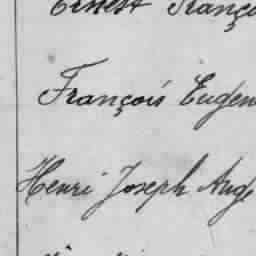 Ernest Franço
François Eugen
Henri Joseph Ange